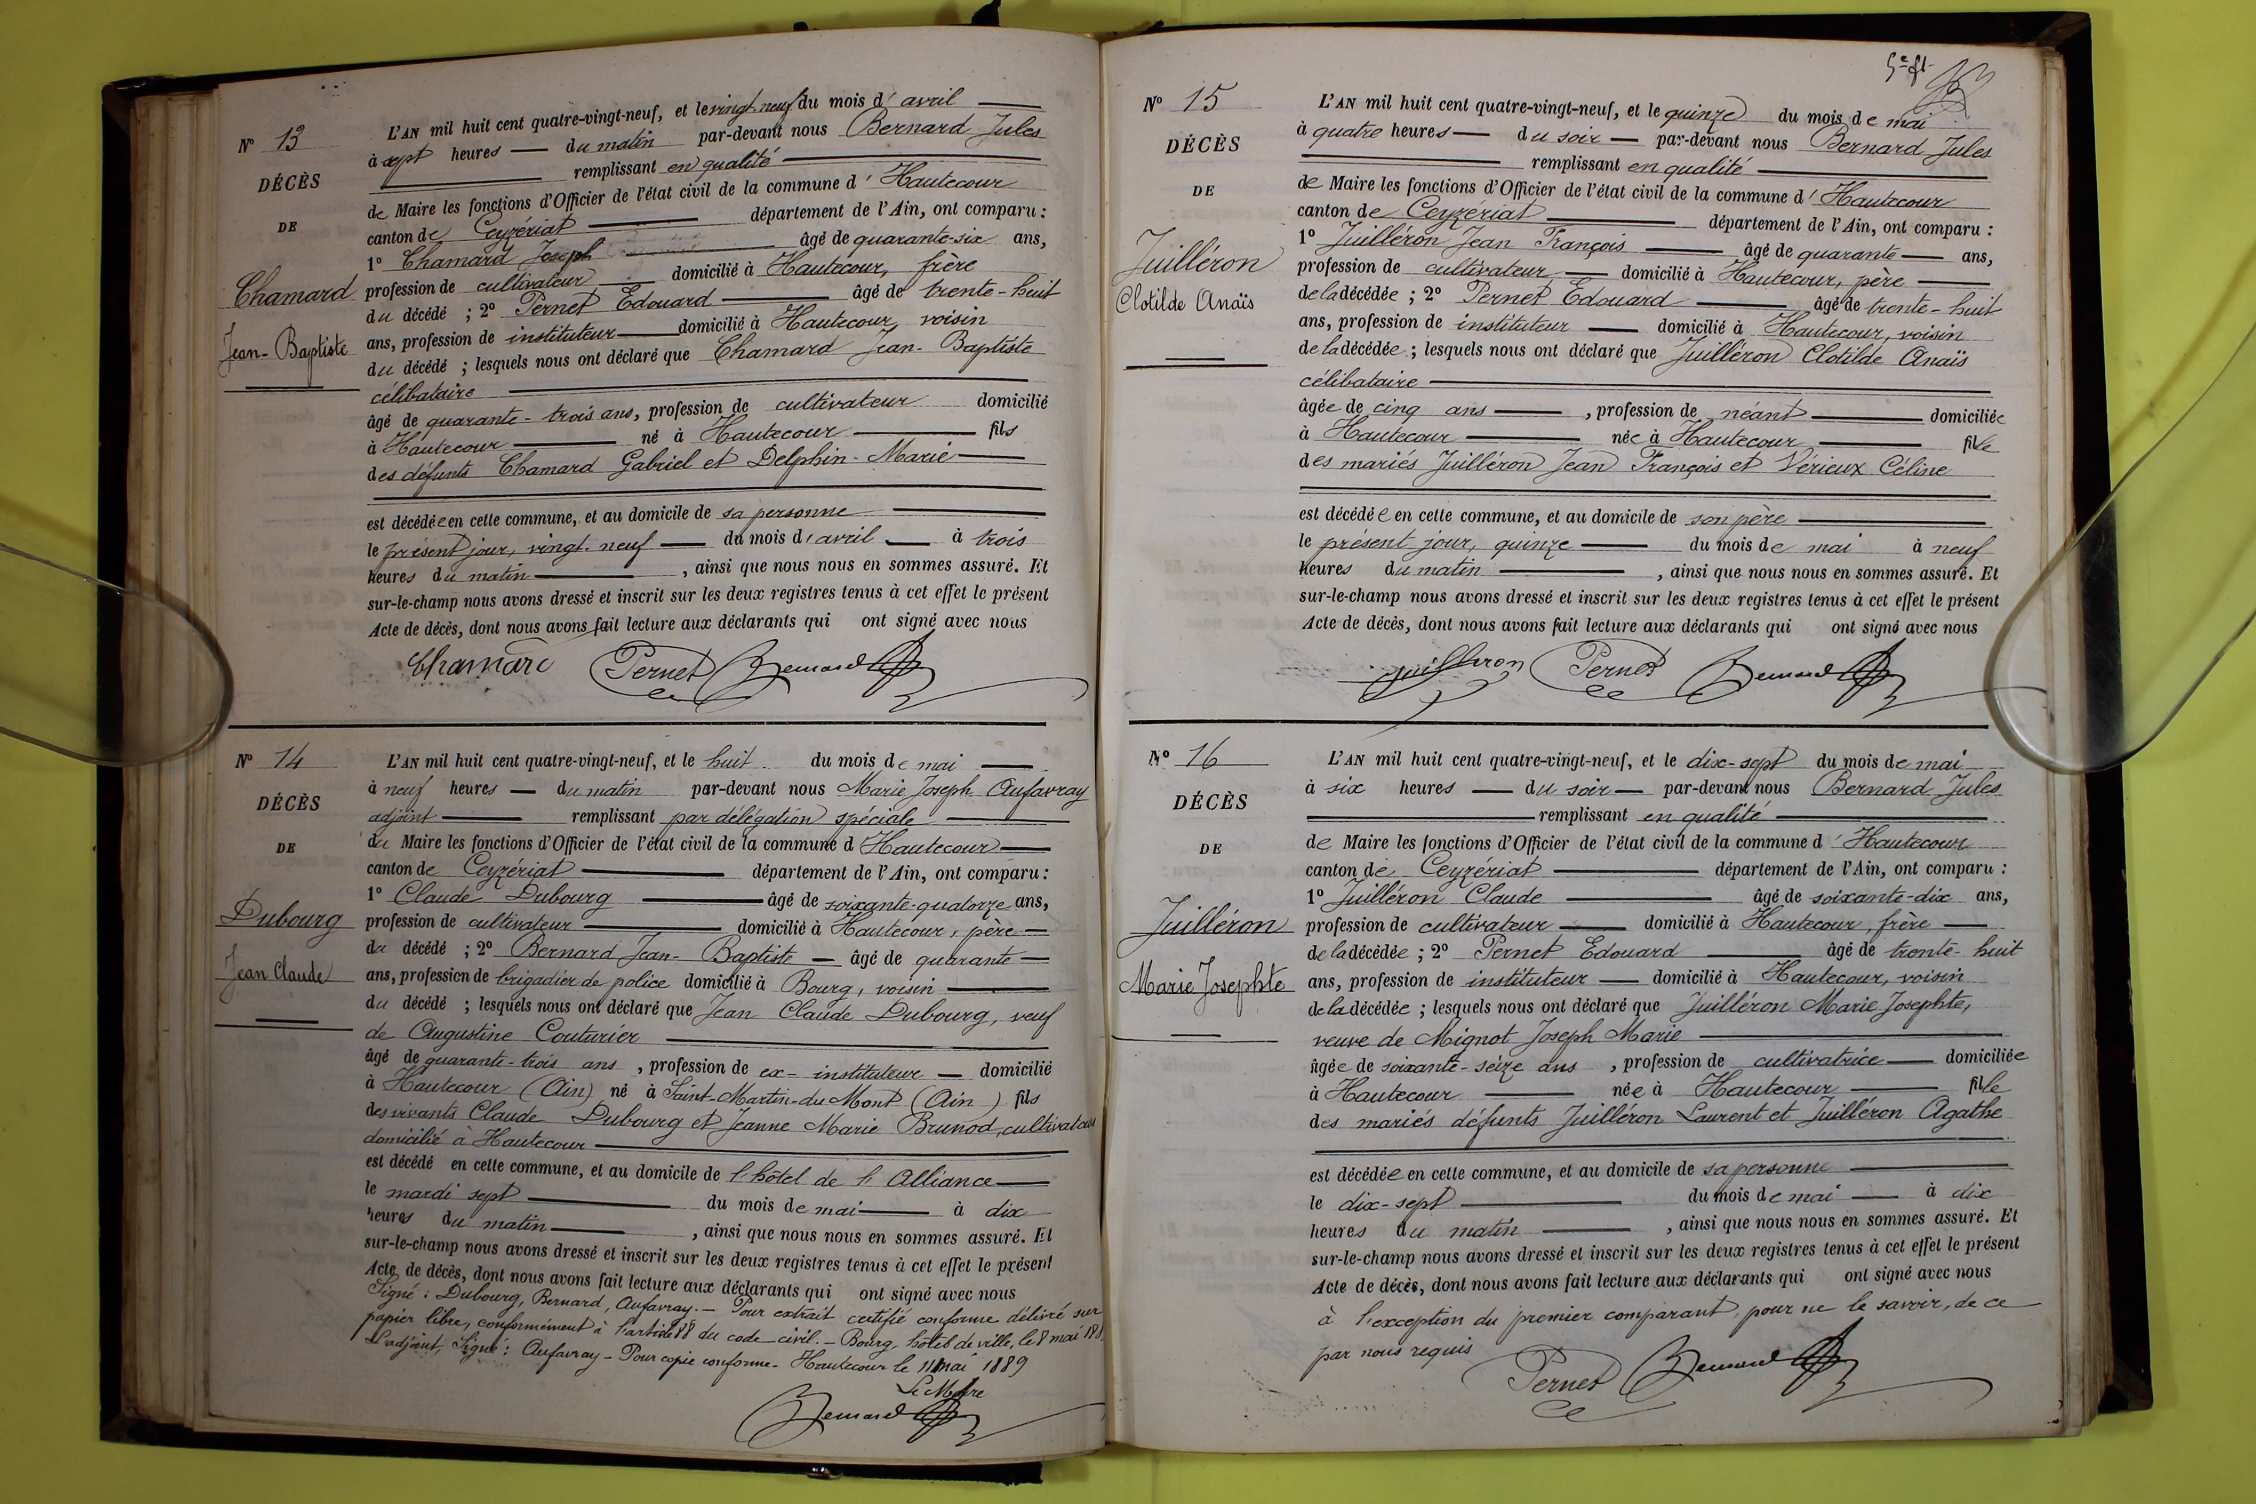 N° 13
DÉCÈS
DE
Chamard
Jean-Baptiste
L'AN mil huit cent quatre-vingt-neuf, et le vingt-neuf du mois d'avril
à sept heures du matin par-devant nous Bernard Jules
remplissant en qualité
de Maire les fonctions d'Officier de l'état civil de la commune d'Hautecour
canton de Ceyzériat département de l'Ain, ont comparu :
1° Chamard Joseph âgé de quarante-six ans,
profession de cultivateur domicilié à Hautecour, frère
du décédé ; 2° Pernet Edouard âgé de trente-huit
ans, profession de instituteur domicilié à Hautecour, voisin
du décédé ; lesquels nous ont déclaré que Chamard Jean-Baptiste
célibataire
âgé de quarante-trois ans, profession de cultivateur domicilié
à Hautecour né à Hautecour fils
des défunts Chamard Gabriel et Delphin-Marie
est décédée en cette commune, et au domicile de sa personne
le présent jour, vingt-neuf du mois d'avril à trois
heures du matin, ainsi que nous nous en sommes assuré. Et
sur-le-champ nous avons dressé et inscrit sur les deux registres tenus à cet effet le présent
Acte de décès, dont nous avons fait lecture aux déclarants qui ont signé avec nous
Chamard Pernet Bernard
N° 14
DÉCÈS
DE
Dubourg
Jean Claude
L'AN mil huit cent quatre-vingt-neuf, et le huit du mois de mai
à neuf heures du matin par-devant nous Marie Joseph Aufavray
adjoint remplissant par délégation spéciale
du Maire les fonctions d'Officier de l'état civil de la commune d Hautecour
canton de Ceyzériat département de l'Ain, ont comparu :
1° Claude Dubourg âgé de soixante-quatorze ans,
profession de cultivateur domicilié à Hautecour, père
du décédé ; 2° Bernard Jean-Baptiste âgé de quarante
ans, profession de brigadier de police domicilié à Bourg, voisin
du décédé ; lesquels nous ont déclaré que Jean Claude Dubourg, veuf
de Augustine Couturier
âgé de quarante-trois ans, profession de ex-instituteur domicilié
à Hautecour (Ain) né à Saint-Martin-du-Mont (Ain) fils
des vivants Claude Dubourg et Jeanne Marie Brunod, cultivateurs
domicilié à Hautecour
est décédé en cette commune, et au domicile de l'hôtel de l'Alliance
le mardi sept du mois de mai à dix
heures du matin, ainsi que nous nous en sommes assuré. Et
sur-le-champ nous avons dressé et inscrit sur les deux registres tenus à cet effet le présent
Acte de décès, dont nous avons fait lecture aux déclarants qui ont signé avec nous
Signé : Dubourg, Bernard, Aufavray. — Pour extrait certifié conforme délivré sur
papier libre, conformément à l'article 88 du code civil. — Bourg, hôtel de ville, le 8 mai 188
L'adjoint, Signé : Aufavray — Pour copie conforme — Hautecour le 11 mai 1889
Le Maire
Bernard
5e ft
N° 15
DÉCÈS
DE
Juilléron
Clotilde Anaïs
L'AN mil huit cent quatre-vingt-neuf, et le quinze du mois de mai
à quatre heures du soir par-devant nous Bernard Jules
remplissant en qualité
de Maire les fonctions d'Officier de l'état civil de la commune d'Hautecour
canton de Ceyzériat département de l'Ain, ont comparu :
1° Juilléron Jean François âgé de quarante ans,
profession de cultivateur domicilié à Hautecour, père
de la décédée ; 2° Pernet Edouard âgé de trente-huit
ans, profession de instituteur domicilié à Hautecour, voisin
de la décédée ; lesquels nous ont déclaré que Juilléron Clotilde Anaïs
célibataire
âgée de cinq ans, profession de néant domiciliée
à Hautecour née à Hautecour fille
des mariés Juilléron Jean François et Vérieux Céline
est décédée en cette commune, et au domicile de son père
le présent jour, quinze du mois de mai à neuf
heures du matin, ainsi que nous nous en sommes assuré. Et
sur-le-champ nous avons dressé et inscrit sur les deux registres tenus à cet effet le présent
Acte de décès, dont nous avons fait lecture aux déclarants qui ont signé avec nous
Juilleron Pernet Bernard
N° 16
DÉCÈS
DE
Juilléron
Marie Josephte
L'AN mil huit cent quatre-vingt-neuf, et le dix-sept du mois de mai
à six heures du soir par-devant nous Bernard Jules
remplissant en qualité
de Maire les fonctions d'Officier de l'état civil de la commune d'Hautecour
canton de Ceyzériat département de l'Ain, ont comparu :
1° Juilléron Claude âgé de soixante-dix ans,
profession de cultivateur domicilié à Hautecour, frère
de la décédée ; 2° Pernet Edouard âgé de trente-huit
ans, profession de instituteur domicilié à Hautecour, voisin
de la décédée ; lesquels nous ont déclaré que Juilléron Marie Josephte,
veuve de Mignot Joseph Marie
âgée de soixante-seize ans, profession de cultivatrice domiciliée
à Hautecour née à Hautecour fille
des mariés défunts Juilléron Laurent et Juilléron Agathe
est décédée en cette commune, et au domicile de sa personne
le dix-sept du mois de mai à dix
heures du matin, ainsi que nous nous en sommes assuré. Et
sur-le-champ nous avons dressé et inscrit sur les deux registres tenus à cet effet le présent
Acte de décès, dont nous avons fait lecture aux déclarants qui ont signé avec nous
à l'exception du premier comparant, pour ne le savoir, de ce
par nous requis
Pernet Bernard